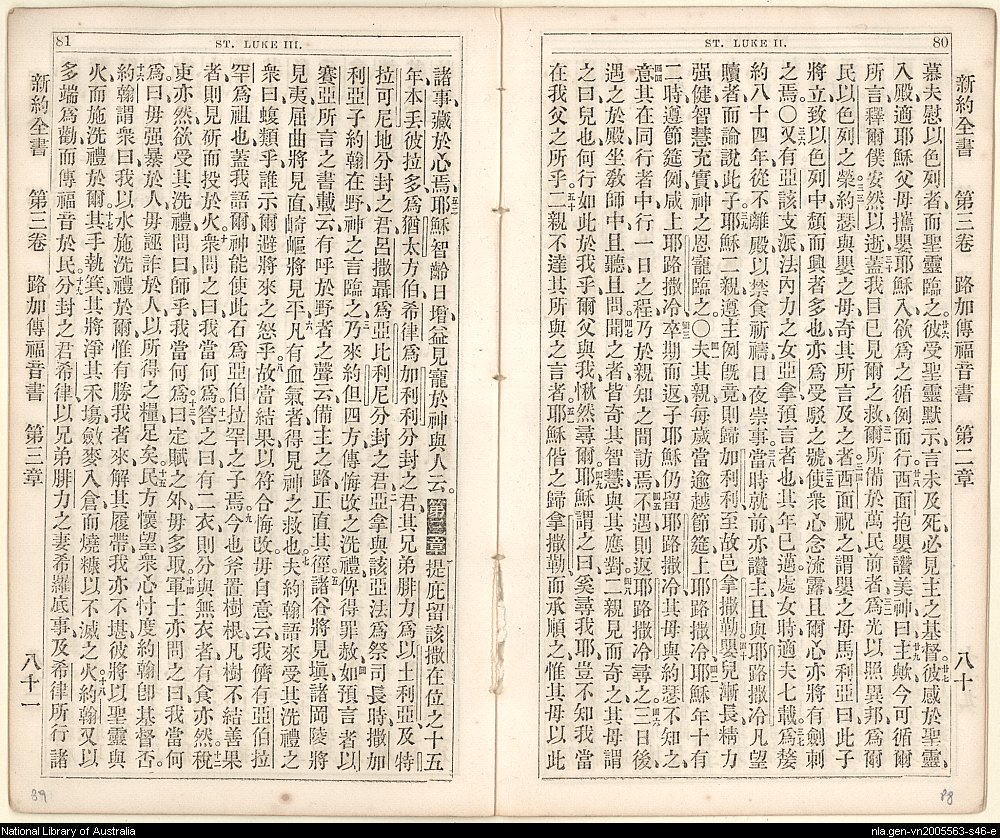 80
ST. LUKE II.
新約全書 第三卷 路加傳福音書 第二章 八十
慕夫慰以色列者而聖靈臨之彼受聖靈默示言未及死必見主之基督彼感於聖靈
入殿適耶穌父母攜嬰耶穌入欲爲之循例而行西面抱嬰讚美神曰主歟今可循爾
所言釋爾僕安然以逝蓋我目已見爾之救爾所備於萬民前者爲光以照異邦爲爾
民以色列之榮約瑟與嬰之母奇其所言及之者西面祝之謂嬰之母馬利亞曰此子
將立致以色列中頹而興者多也亦爲受駁之號使衆心念流露且爾心亦將有劍刺
之焉〇又有亞該支派法內力之女亞拿預言者也其年已邁處女時適夫七載爲嫠
約八十四年從不離殿以禁食祈禱日夜崇事當時就前亦讚主且與耶路撒冷凡望
贖者而論說此子耶穌二親遵主例旣竟則歸加利利至故邑拿撒勒嬰兒漸長精力
强健智慧充實神之恩寵臨之〇夫其親每歲當逾越節筵上耶路撒冷耶穌年十有
二時遵節筵例咸上耶路撒冷卒期而返子耶穌仍留耶路撒冷其母與約瑟不知之
意其在同行者中行一日之程乃於親知之間訪焉不遇則返耶路撒冷尋之三日後
遇之於殿坐敎師中且聽且問聞之者皆奇其智慧與其應對二親見而奇之其母謂
之曰兒也何行如此於我乎爾父與我愀然尋爾耶穌謂之曰奚尋我耶豈不知我當
在我父之所乎二親不達其所與之言者耶穌偕之歸拿撒勒而承順之惟其母以此
81
ST. LUKE III.
諸事藏於心焉耶穌智齡日增益見寵於神與人云。第三章提庇留該撒在位之十五
年本丢彼拉多爲猶太方伯希律爲加利利分封之君其兄弟腓力爲以土利亞及特
拉可尼地分封之君呂撒聶爲亞比利尼分封之君亞拿與該亞法爲祭司長時撒加
利亞子約翰在野神之言臨之乃來約但四方傳悔改之洗禮俾得罪赦如預言者以
賽亞所言之書載云有呼於野者之聲云備主之路正直其徑諸谷將見塡諸岡陵將
見夷屈曲將見直崎嶇將見平凡有血氣者得見神之救也夫約翰語來受其洗禮之
衆曰蝮類乎誰示爾避將來之怒乎故當結果以符合悔改毋自意云我儕有亞伯拉
罕爲祖也蓋我語爾神能使此石爲亞伯拉罕之子焉今也斧置樹根凡樹不結善果
者則見斫而投於火衆問之曰我當何爲答之曰有二衣則分與無衣者有食亦然稅
吏亦然欲受其洗禮問曰師乎我當何爲曰定賦之外毋多取軍士亦問之曰我當何
爲曰毋强暴於人毋誣詐於人以所得之糧足矣民方懷望衆心忖度約翰卽基督否
約翰謂衆曰我以水施洗禮於爾惟有勝我者來解其履帶我亦不堪彼將以聖靈與
火而施洗禮於爾其手執箕其將淨其禾塲斂麥入倉而燒糠以不滅之火約翰又以
多端爲勸而傳福音於民分封之君希律以兄弟腓力之妻希羅底事及希律所行諸
新約全書 第三卷 路加傳福音書 第三章 八十一
89
88
National Library of Australia
nla.gen-vn2005563-s46-e